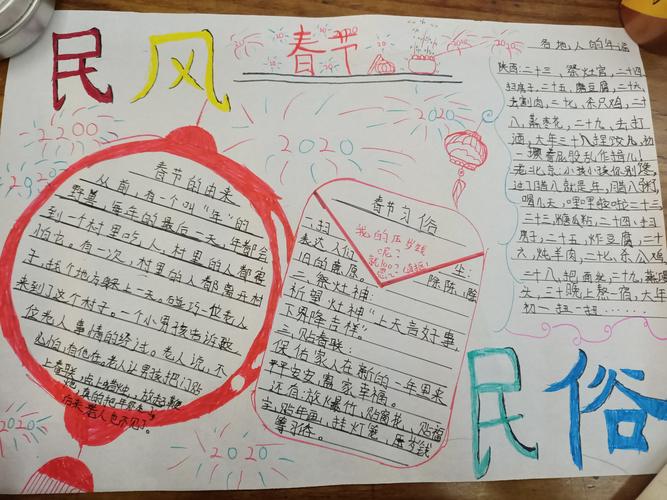 民风
春节
2020
2020
2020
2020
2020
2020
春节的由来
从前，有个叫"年"的
野兽，每年的最后一天，年都会
到一个村里吃人，村里的人都
怕它。有一次，村里的人都离开村
子，找个地方躲上一天。碰巧一位老人
来到了这个村子。一个小男孩告诉
位老人事情的经过。老人说，不
必怕，有他在。老人让男孩把门贴
上春联，点上蜡烛，放起鞭
春节习俗
我的压岁钱
呢？
一、扫尘：
表达人们除陈、除
旧的意愿
二、祭灶神：
祈望灶神"上天言好事，
下界降吉祥。"
三、贴春联：
保佑家人在新的一年里来
平平安安，阖家幸福。
还有：放爆竹，贴窗花、贴福
字，贴年画，挂灯笼，压岁钱
等习俗。
各地人的年谣
陕西：二十三，祭灶官，二十四
扫房子，二十五，磨豆腐，二十六
去割肉，二十七，杀只鸡，二十
八，蒸枣花，二十九，去打
酒，大年三十捏饺儿，初
一撅着屁股乱作揖儿！
老北京：小孩小孩你别馋
过了腊八就是年，腊八粥
喝几天，哩哩啦啦二十三
二十三，糖瓜粘，二十四，扫
房子，二十五，炸豆腐，二十
六，炖羊肉，二十七，杀公鸡
二十八，把面发，二十九，蒸馒
头，三十晚上熬一宿，大年
初一扭一扭……
民俗
2020
2020